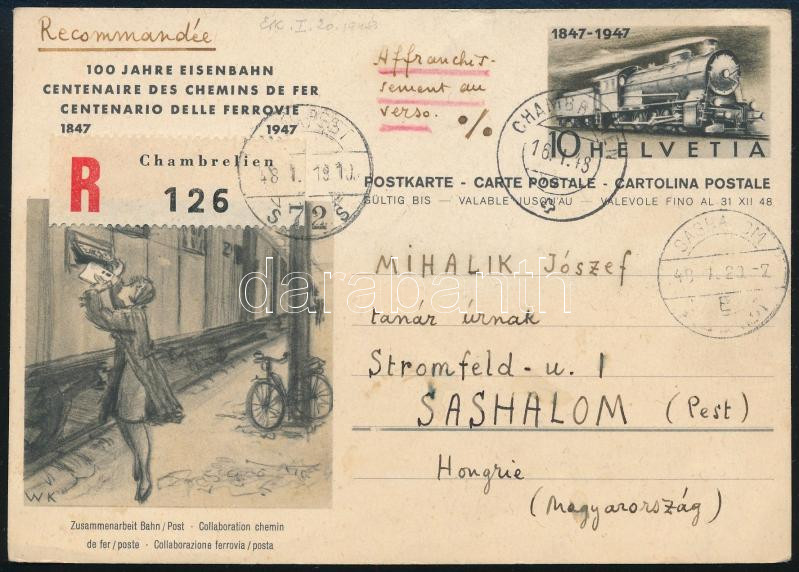 Recommandée
100 JAHRE EISENBAHN
CENTENAIRE DES CHEMINS DE FER
CENTENARIO DELLE FERROVIE
1847 1947
R
Chambrelien
126
Affranchis-
sement au
verso. %
1847-1947
10 HELVETIA
16.1.48
48 I. 19.10
72
POSTKARTE - CARTE POSTALE - CARTOLINA POSTALE
GÜLTIG BIS — VALABLE JUSQU'AU — VALEVOLE FINO AL 31 XII 48
SASHALOM
MIHALIK Jószef
tanár úrnak
Stromfeld-u. 1
SASHALOM (Pest)
Hongrie
(Magyarország)
darabanth
WK
Zusammenarbeit Bahn/Post · Collaboration chemin
de fer/poste · Collaborazione ferrovia/posta